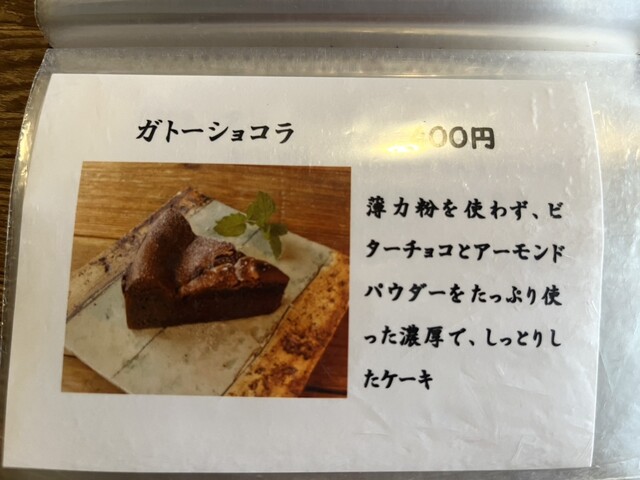 ガトーショコラ
00円
薄力粉を使わず、ビ
ターチョコとアーモンド
パウダーをたっぷり使
った濃厚で、しっとりし
たケーキ